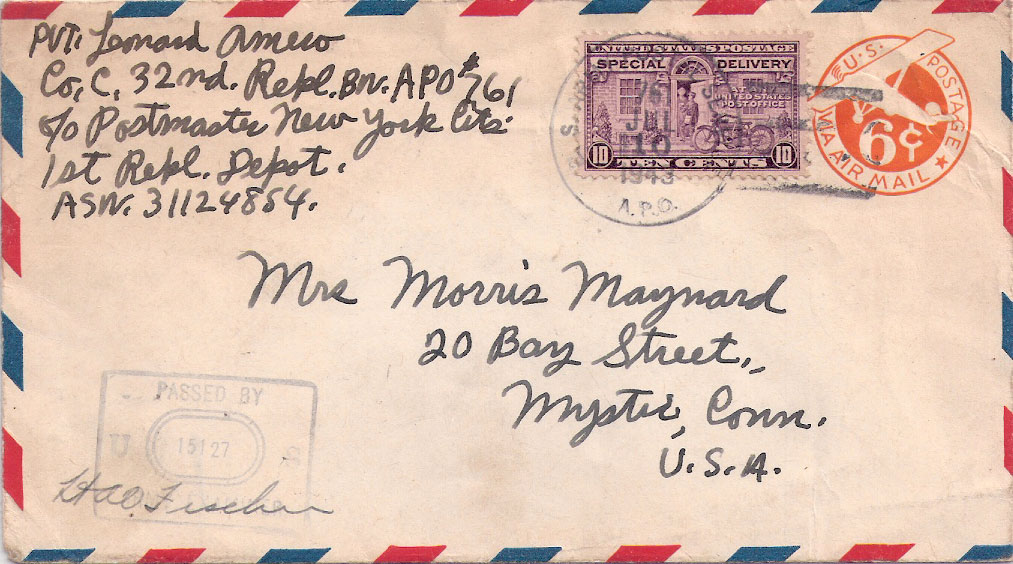 Pvt. Leonard Amero
Co, C, 32nd. Repl. Bn. APO #761
c/o Postmaster New York City
1st Repl. Depot.
ASN. 31124854.
UNITED STATES POSTAGE
SPECIAL DELIVERY
AT ANY
UNITED STATES
POST OFFICE
10 TEN CENTS 10
JUL
10
1943
A.P.O.
U.S. POSTAGE
6¢
VIA AIR MAIL
Mrs Morris Maynard
20 Bay Street,
Mystic, Conn.
U.S.A.
PASSED BY
U S
15127
Fischer